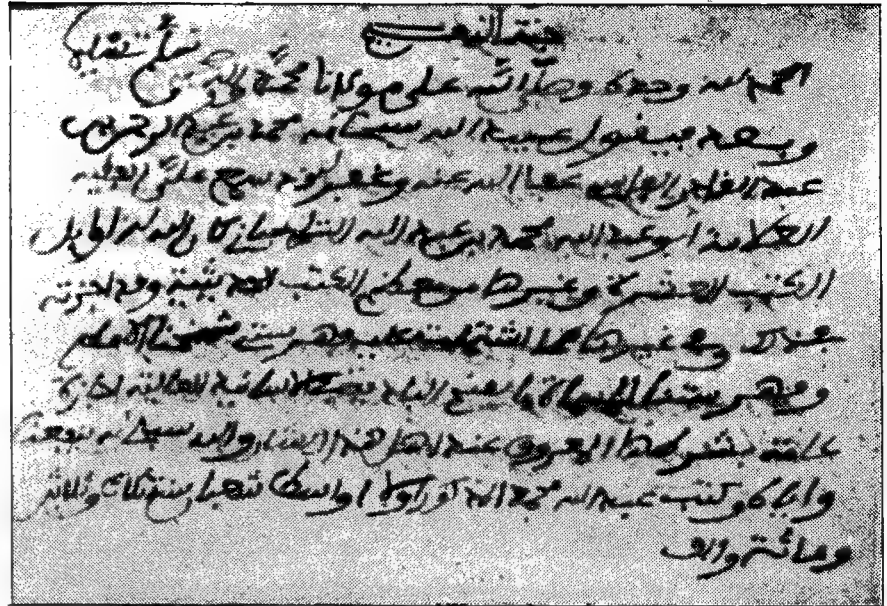 الحمد لله وحده وصلى الله على مولانا محمد وآله
وبعد فيقول عبيد الله سبحانه محمد بن عبد الرحمن بن
عبد القادر الفاسي عفا الله عنه وغفر له قد سمع علي الفقيه
العلامة ابو عبد الله محمد بن عبد الله كان الله له اوايل
الكتب العشرة وغيرها من معظم الكتب الحديثية وقد اجزته
بذلك وبغيرها مما اشتملت عليه فهرسة شيخنا الامام
وفهرستنا المسماة بالمنح البادية في الاسانيد العالية اجازة
عامة بشرطها المعروف عند اهل هذا الشان والله سبحانه ينفعنا
واياه وكتب عبيد الله محمد المذكور اولا اواسط شعبان سنة ثلاث وثلاثين
ومائة والف